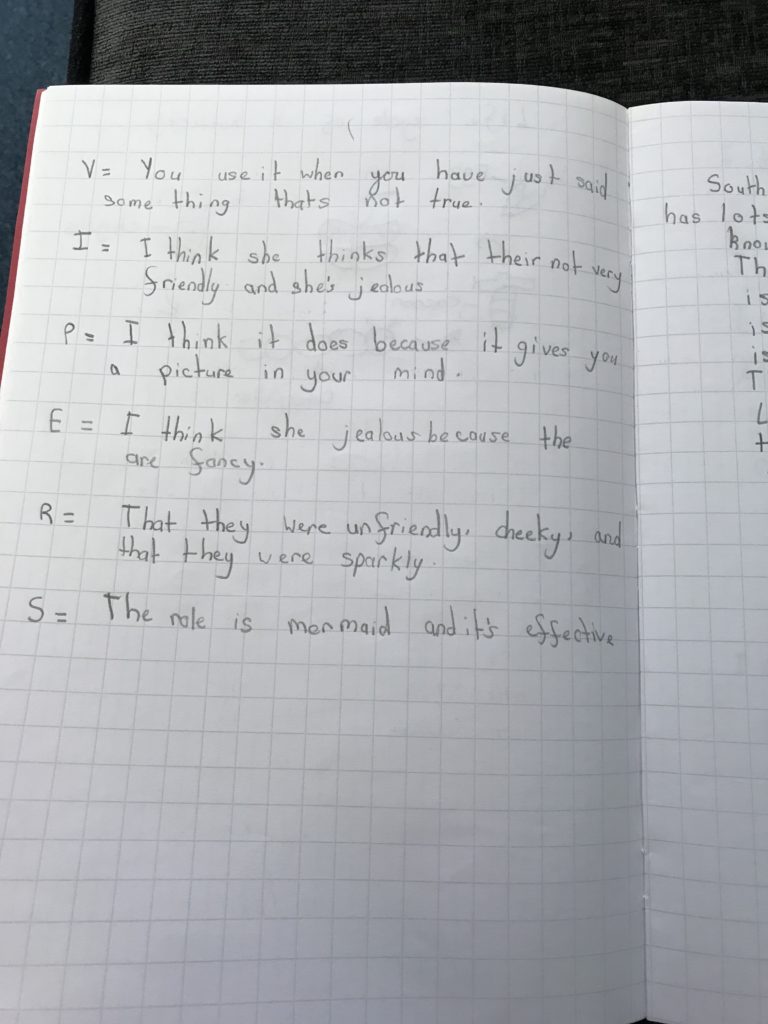 V= You use it when you have just said
some thing thats not true.
I = I think she thinks that their not very
friendly and she's jealous
P= I think it does because it gives you
a picture in your mind.
E = I think she jealous because the
are fancy.
R= That they were unfriendly, cheeky, and
that they were sparkly.
S= The role is mermaid and it's effective
South
has lots
Th
is
is
is
T
L
t